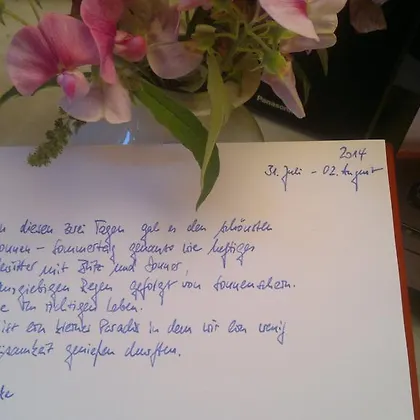 Panasonic
2014
31. Juli - 02. August
n diesen zwei Tagen gab es den schönsten
onnen - Sommertag genauso wie heftiges
ewitter mit Blitz und Donner,
ausgiebigen Regen gefolgt von Sonnenschein.
e im richtigen Leben.
ist ein kleines Paradis in dem wir ein wenig
samkeit genießen durften.